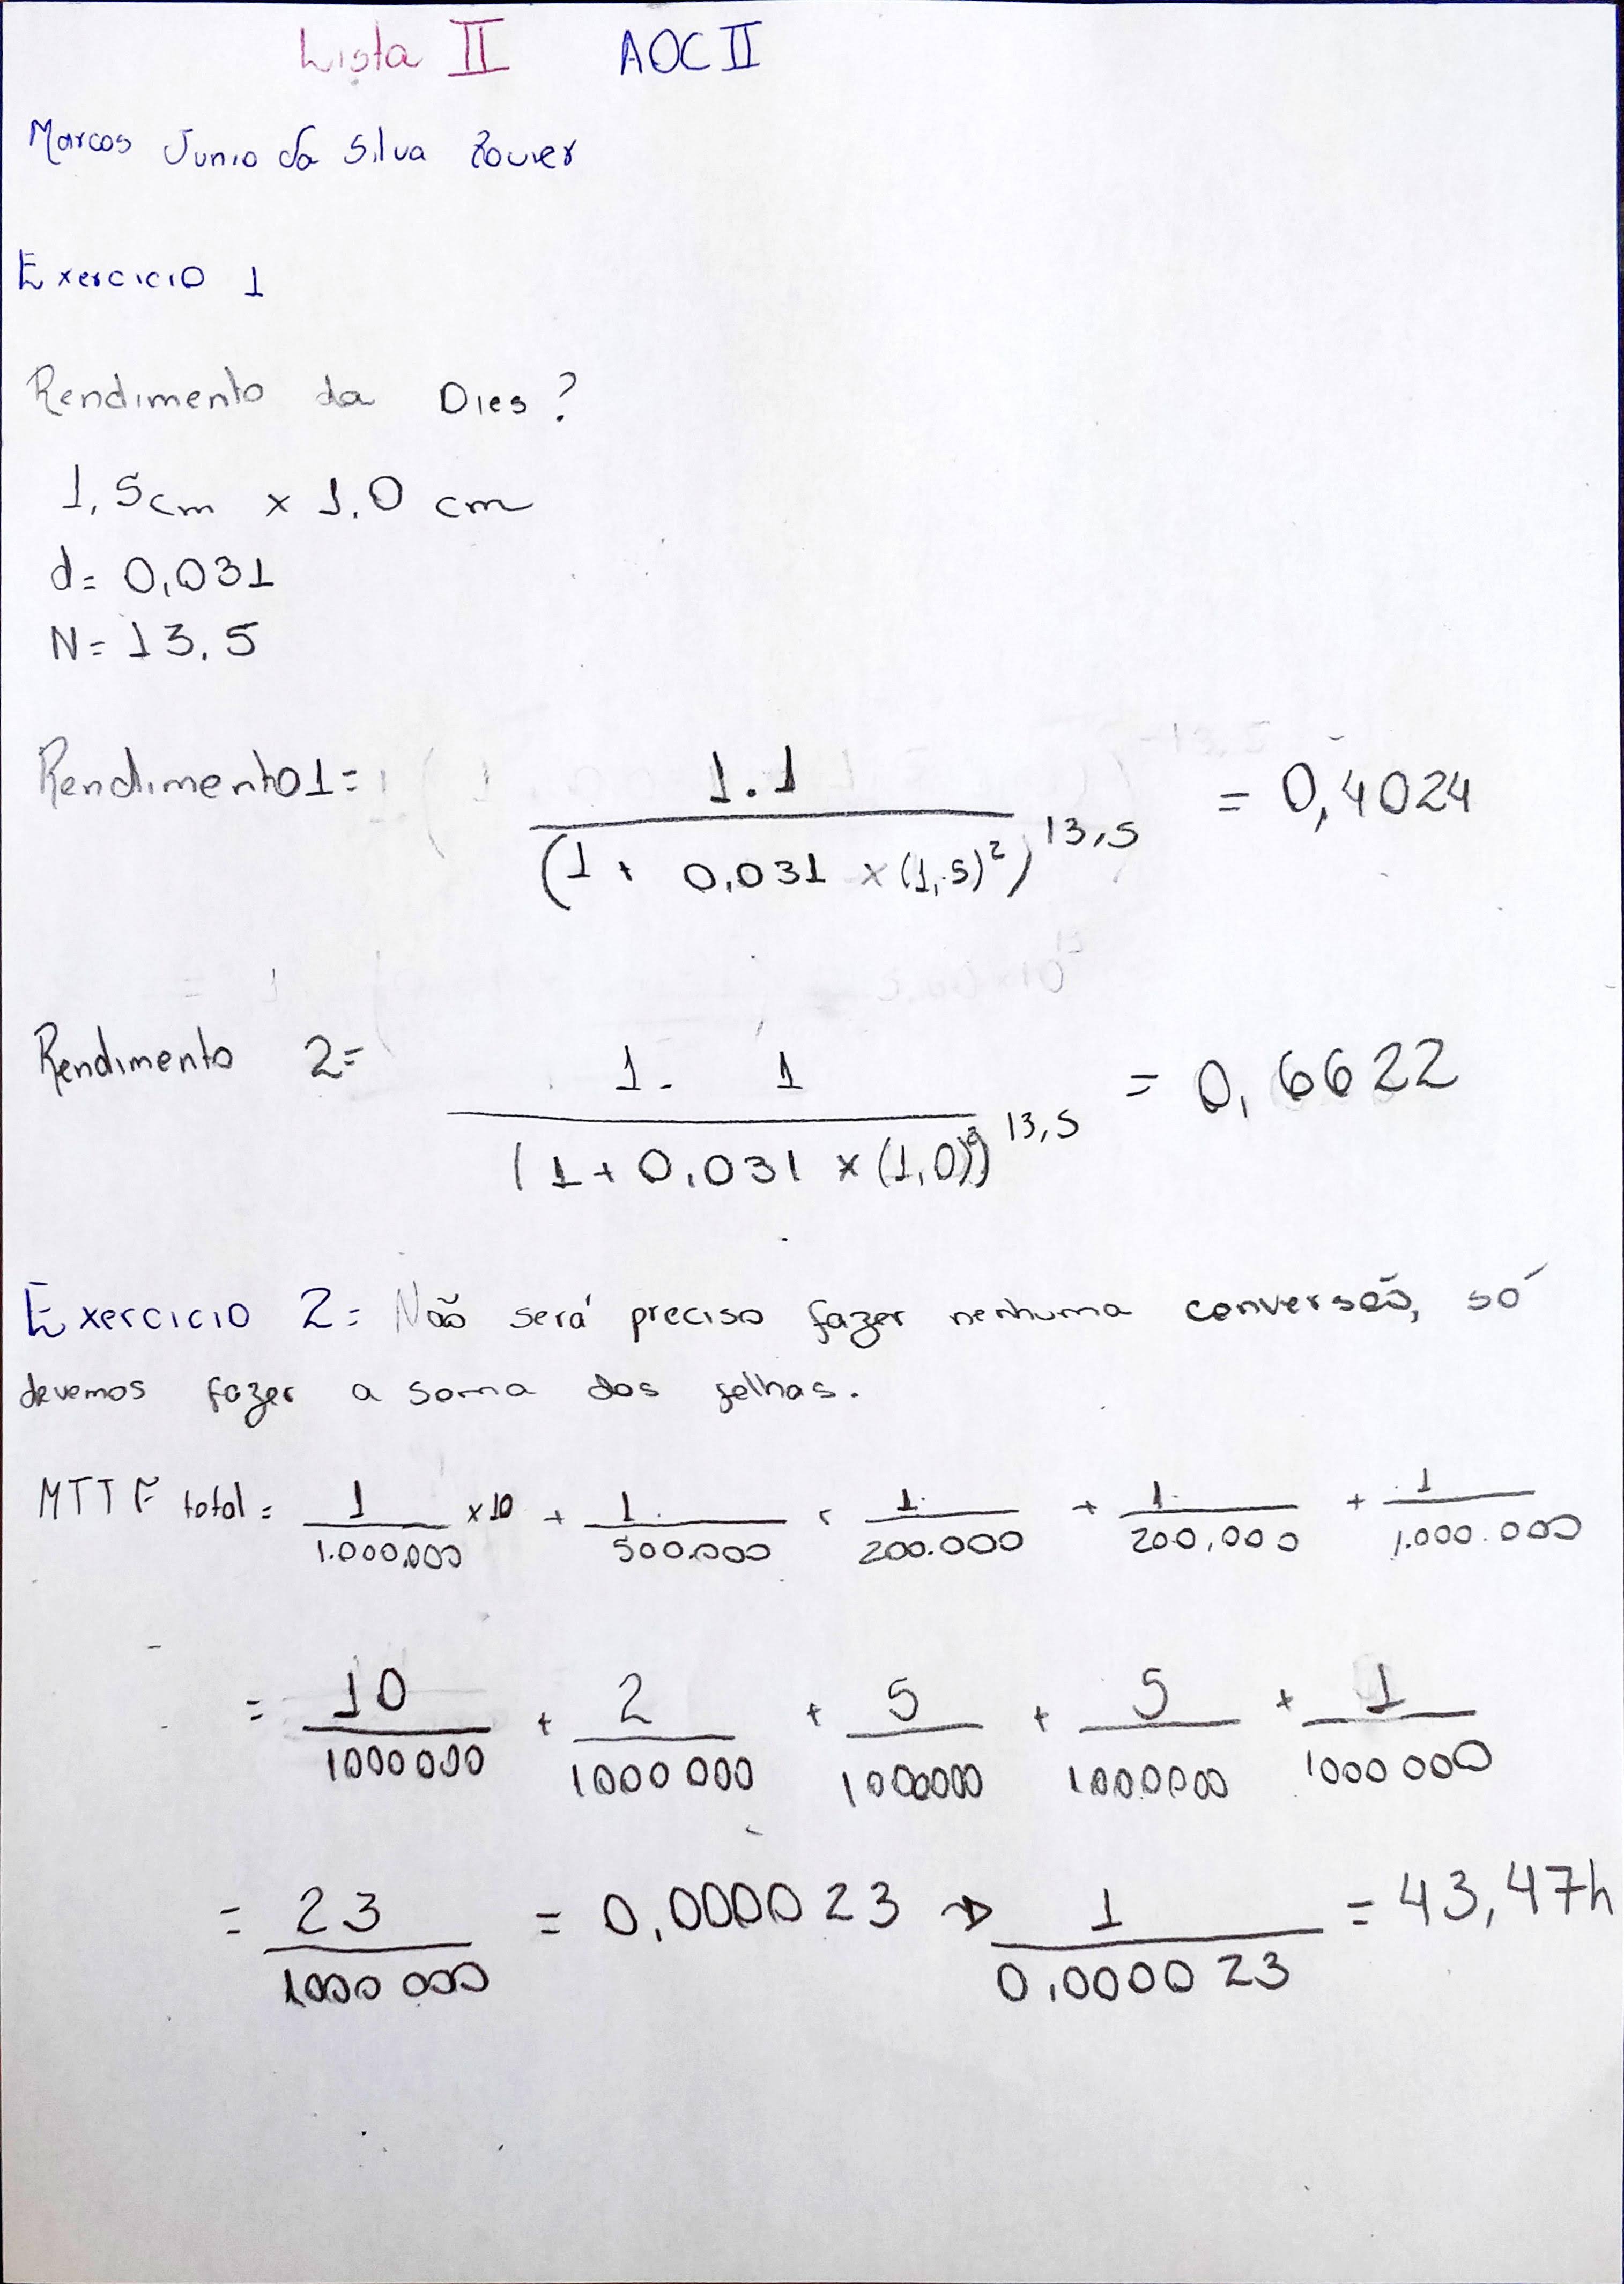 Lista II AOC II
Marcos Junio da Silva Xavier
Exercicio 1
Rendimento da Dies?
1,5cm x 1.0 cm
d= 0,031
N= 13,5
Rendimento1= 1.1 = 0,4024
(1 + 0,031 x (1,5)²)13,5
Rendimento 2= 1. 1 = 0,6622
(1+0,031 x (1,0)²)13,5
Exercicio 2= Não será preciso fazer nenhuma conversão, só
devemos fazer a soma das falhas.
MTTF total = 1 x10 + 1 + 1 + 1 + 1
1.000.000 500.000 200.000 200.000 1.000.000
= 10 + 2 + 5 + 5 + 1
1000 000 1000 000 1000000 1000000 1000 000
= 23 = 0,0000 23 → 1 = 43,47h
1000 000 0,0000 23